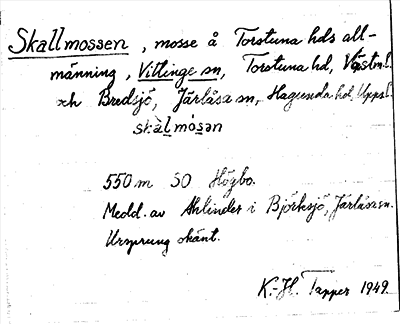 Skallmossen, mosse å Torstuna hds all-
männing, Vittinge sn, Torstuna hd, Västm.l.
och Bredsjö, Järlåsa sn, Hagunda hd, Upps.l.
skàlmósən
550 m SO Högbo.
Medd. av Ahlinder i Björksjö, Järlåsa sn.
Ursprung okänt.
K.-H. Tapper 1949.